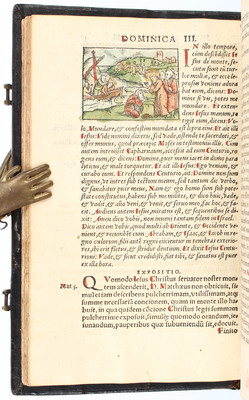 DOMINICA III.
IN illo tempore,
cùm descendisset Ie-
sus de monte, se-
cutæ sunt eũ tur-
bæ multæ, & ecce
leprosus veniens adora-
bat eum, dicens: Domi-
ne si vis, potes me mun-
dare. Et exten-
dens Iesus manum, te-
tigit eum, dicens: Vo-
lo, Mundare, & confestim mundata est lepra eius. Et di-
cit illi Iesus: Vide nemini dixeris, sed vade, ostende te sacerdoti, &
offer munus, quod præcepit Moses in testimonium illis. Cùm
autem introisset Capharnaum, accessit ad eum Centurio, ro-
gans eum, & dicens: Domine, puer meus iacet in domo para-
lyticus, & malè torquetur. Et ait illi Iesus: Ego veniam, &
curabo eum. Et respondens Centurio, ait: Domine non sum
dignus, vt intres sub tectum meum, sed tantum dic verbo,
& sanabitur puer meus. Nam & ego homo sum sub pote-
state constitutus, habens sub me milites, & dico huic, Vade,
& vadit, & alio, Veni, & venit, & seruo meo, Fac hoc, & fa-
cit. Audiens autem Iesus, miratus est, & sequentibus se di-
xit: Amen dico vobis, non inueni tantam fidem in Israel.
Dico autem vobis, quod multi ab Oriente, & Occidente ve-
nient, & recumbent cum Abraham, & Isaac, & Iacob in re-
gno cælorum: filii autẽ regni eiicientur in tenebras exterio-
res, ibi erit fletus, & stridor dentium. Et dixit Iesus Centu-
rioni: Vade, & sicut credidisti, fiat tibi, & sanatus est puer
ex illa hora.
EXPOSITIO.
QVomodo Iesus Christus seruator noster mon-
tem ascenderit, D. Matthæus non obticuit, si-
mul etiam describens pulcherrimam, vtilissimam,
summe necessariã concionem, quam in monte illo ha-
buit, in qua quidem cõcione Christus legis summam
pulcherrime exposuit, simul quomodo orandum, ie-
iunandum, pauperibus quæ subueniendũ sit, edocuit.
Finito